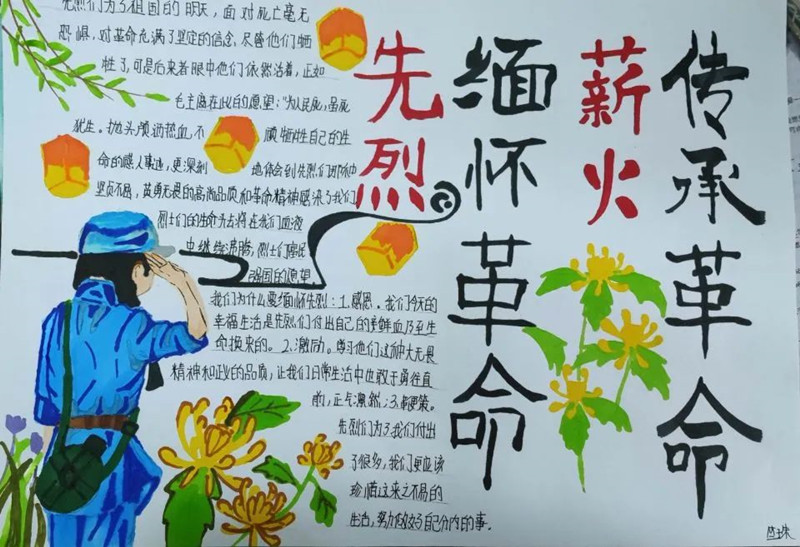 传承革命
薪火
缅怀革命
先烈
先烈们为了祖国的明天，面对死亡毫无
恐惧，对革命充满了坚定的信念，尽管他们牺
牲了，可是后来者眼中他们依然活着，正如
毛主席在此的愿望：“为人民死，虽死
犹生。抛头颅洒热血，不顾牺牲自己的生
命的感人事迹，更深刻地体会到先烈们那种
坚贞不屈，英勇无畏的高尚品质和革命精神感染了我们
烈士们的生命力去将在我们血液
中继续沸腾，烈士们
祖国的愿望
我们为什么要缅怀先烈：1.感恩。我们今天的
幸福生活是先烈们付出自己的鲜血乃至生
命换来的。2.激励。学习他们这种大无畏
精神和正义的品质，让我们日常生活中也敢于勇往直
前，正气凛然；3.鞭策。
先烈们为了我们付出
了很多，我们更应该
珍惜这来之不易的
生活，努力做好自己分内的事。